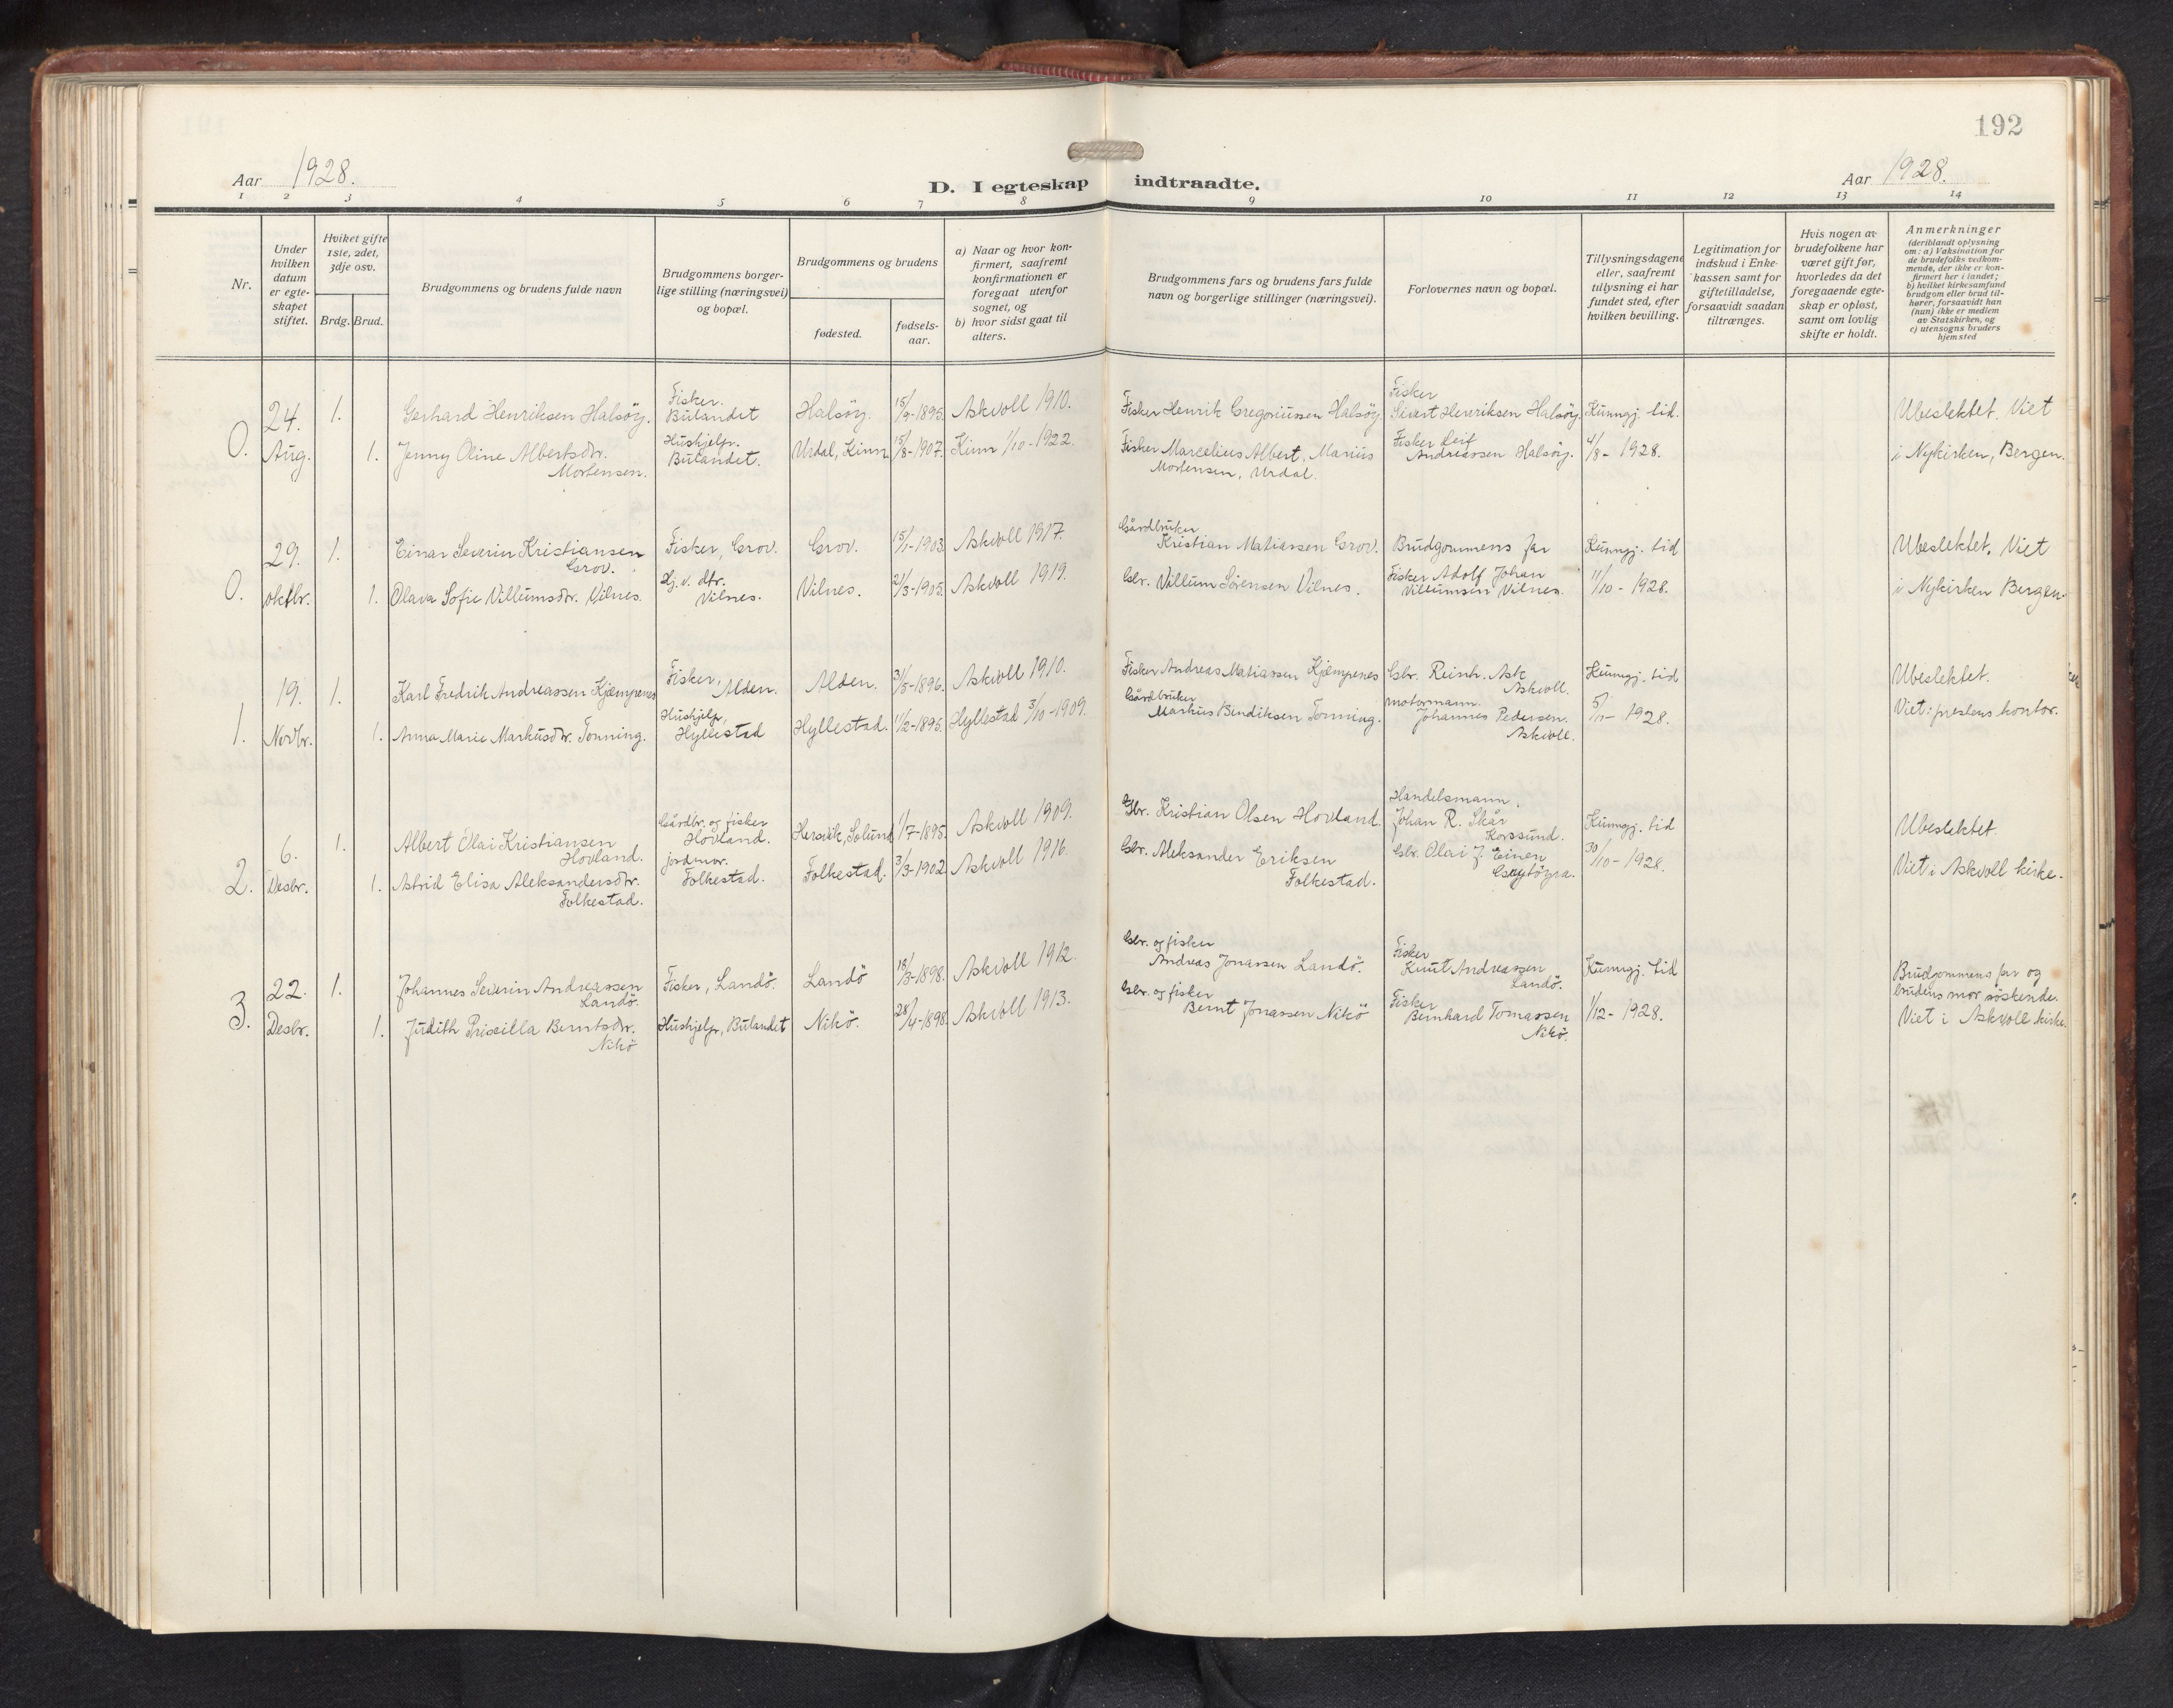 192
Aar 1928.
D. I egteskap indtraadte.
Aar 1928.
1 2 3 4 5 6 7 8 9 10 11 12 13 14
Nr.
Under hvilken datum er egteskapet stiftet.
Hviket gifte 1ste, 2det, 3dje osv.
Brdg. Brud.
Brudgommens og brudens fulde navn
Brudgommens borgerlige stilling (næringsvei) og bopæl.
Brudgommens og brudens
fødested.
fødselsaar.
a) Naar og hvor konfirmert, saafremt konfirmationen er foregaat utenfor sognet, og
b) hvor sidst gaat til alters.
Brudgommens fars og brudens fars fulde navn og borgerlige stillinger (næringsvei).
Forlovernes navn og bopæl.
Tillysningsdagene eller, saafremt tullysning ei har fundet sted, efter hvilken bevilling.
Legitimation for indskud i Enkekassen samt for giftetilladelse, forsaavidt saadan tiltrænges.
Hvis nogen av brudefolkene har været gift før, hvorledes da det foregaaende egteskap er opløst, samt om lovlig skifte er holdt.
Anmerkninger (deriblandt oplysning om: a) Vaksination for de brudefolks vedkommende, der ikke er konfirmert her i landet; b) hvilket kirkesamfund brudgom eller brud tilhører, forsaavidt han (hun) ikke er medlem av Statskirken, og c) utensogns bruders hjemsted
0.
24. Aug.
1.
Gerhard Henriksen Halsöy.
Fisker. Bulandet
Halsöy.
15/9-1895.
Askvoll 1910.
Fisker Henrik Gregoriussen Halsöy.
Fisker Sivert Henriksen Halsöy.
Kunngj. tid.
Ubeslektet. Viet
1.
Jenny Oline Albertsdtr. Mortensen.
Hushjelp. Bulandet.
Urdal, Kinn
15/8-1907.
Kinn 1/10-1922.
Fisker Marcelius Albert, Marius Mortensen, Urdal.
Fisker Leif Andreassen Halsöy.
4/8-1928.
i Nykirken, Bergen.
0.
29. oktbr.
1.
Einar Severin Kristiansen Grov.
Fisker, Grov.
Grov.
15/1-1903.
Askvoll 1917.
Gårdbruker Kristian Matiassen Grov.
Brudgommens far
Kunngj. tid
Ubeslektet. Viet
1.
Olava Sofie Villumsdtr. Vilnes.
Hj.v. dtr. Vilnes.
Vilnes.
21/3-1905.
Askvoll 1919.
Gbr. Villum Sörensen Vilnes.
Fisker Adolf Johan Villumsen Vilnes.
11/10-1928.
i Nykirken Bergen.
1.
19. Novbr.
1.
Karl Fredrik Andreassen Kjempenes
Fisker, Alden.
Alden.
31/5-1896.
Askvoll 1910.
Fisker Andreas Matiassen Kjempenes
Gbr. Reinh. Ask Askvoll.
Kunngj. tid
Ubeslektet.
1.
Anna Marie Markusdtr. Tonning.
Hushjelp, Hyllestad
Hyllestad.
1/2-1895.
Hyllestad 3/10-1909.
Gårdbruker Markus Bendiksen Tonning.
motormann Johannes Pedersen. Askvoll.
5/11-1928.
Viet i prestens kontor.
2.
6. Desbr.
1.
Albert Olai Kristiansen Hovland.
Gårdbr. og fisker Hovland.
Hersvik, Solund
1/7-1895.
Askvoll 1909.
Gbr. Kristian Olsen Hovland.
Handelsmann, Johan R. Skår Korssund.
Kunngj. tid
Ubeslektet.
1.
Astrid Elisa Aleksandersdtr. Folkestad.
jordmor. Folkestad.
Folkestad.
3/3-1902
Askvoll 1916.
Gbr. Aleksander Eriksen Folkestad.
Gbr. Olai J. Einen
30/10-1928.
Viet i Askvoll kirke.
3.
22. Desbr.
1.
Johannes Severin Andreassen Landö.
Fisker, Landö.
Landö
18/3-1898.
Askvoll 1912.
Gbr. og fisker Andreas Jonassen Landö.
Fisker Knut Andreassen Landö.
Kunngj. tid
Brudgommens far og brudens mor söskende.
1.
Judith Priscilla Berntsdtr. Nikö
Hushjelp, Bulandet
Nikö.
28/4-1898.
Askvoll 1913.
Gbr. og fisker Bernt Jonassen Nikö
Fisker Bernhard Tomassen Nikö.
1/12-1928.
Viet i Askvoll kirke.